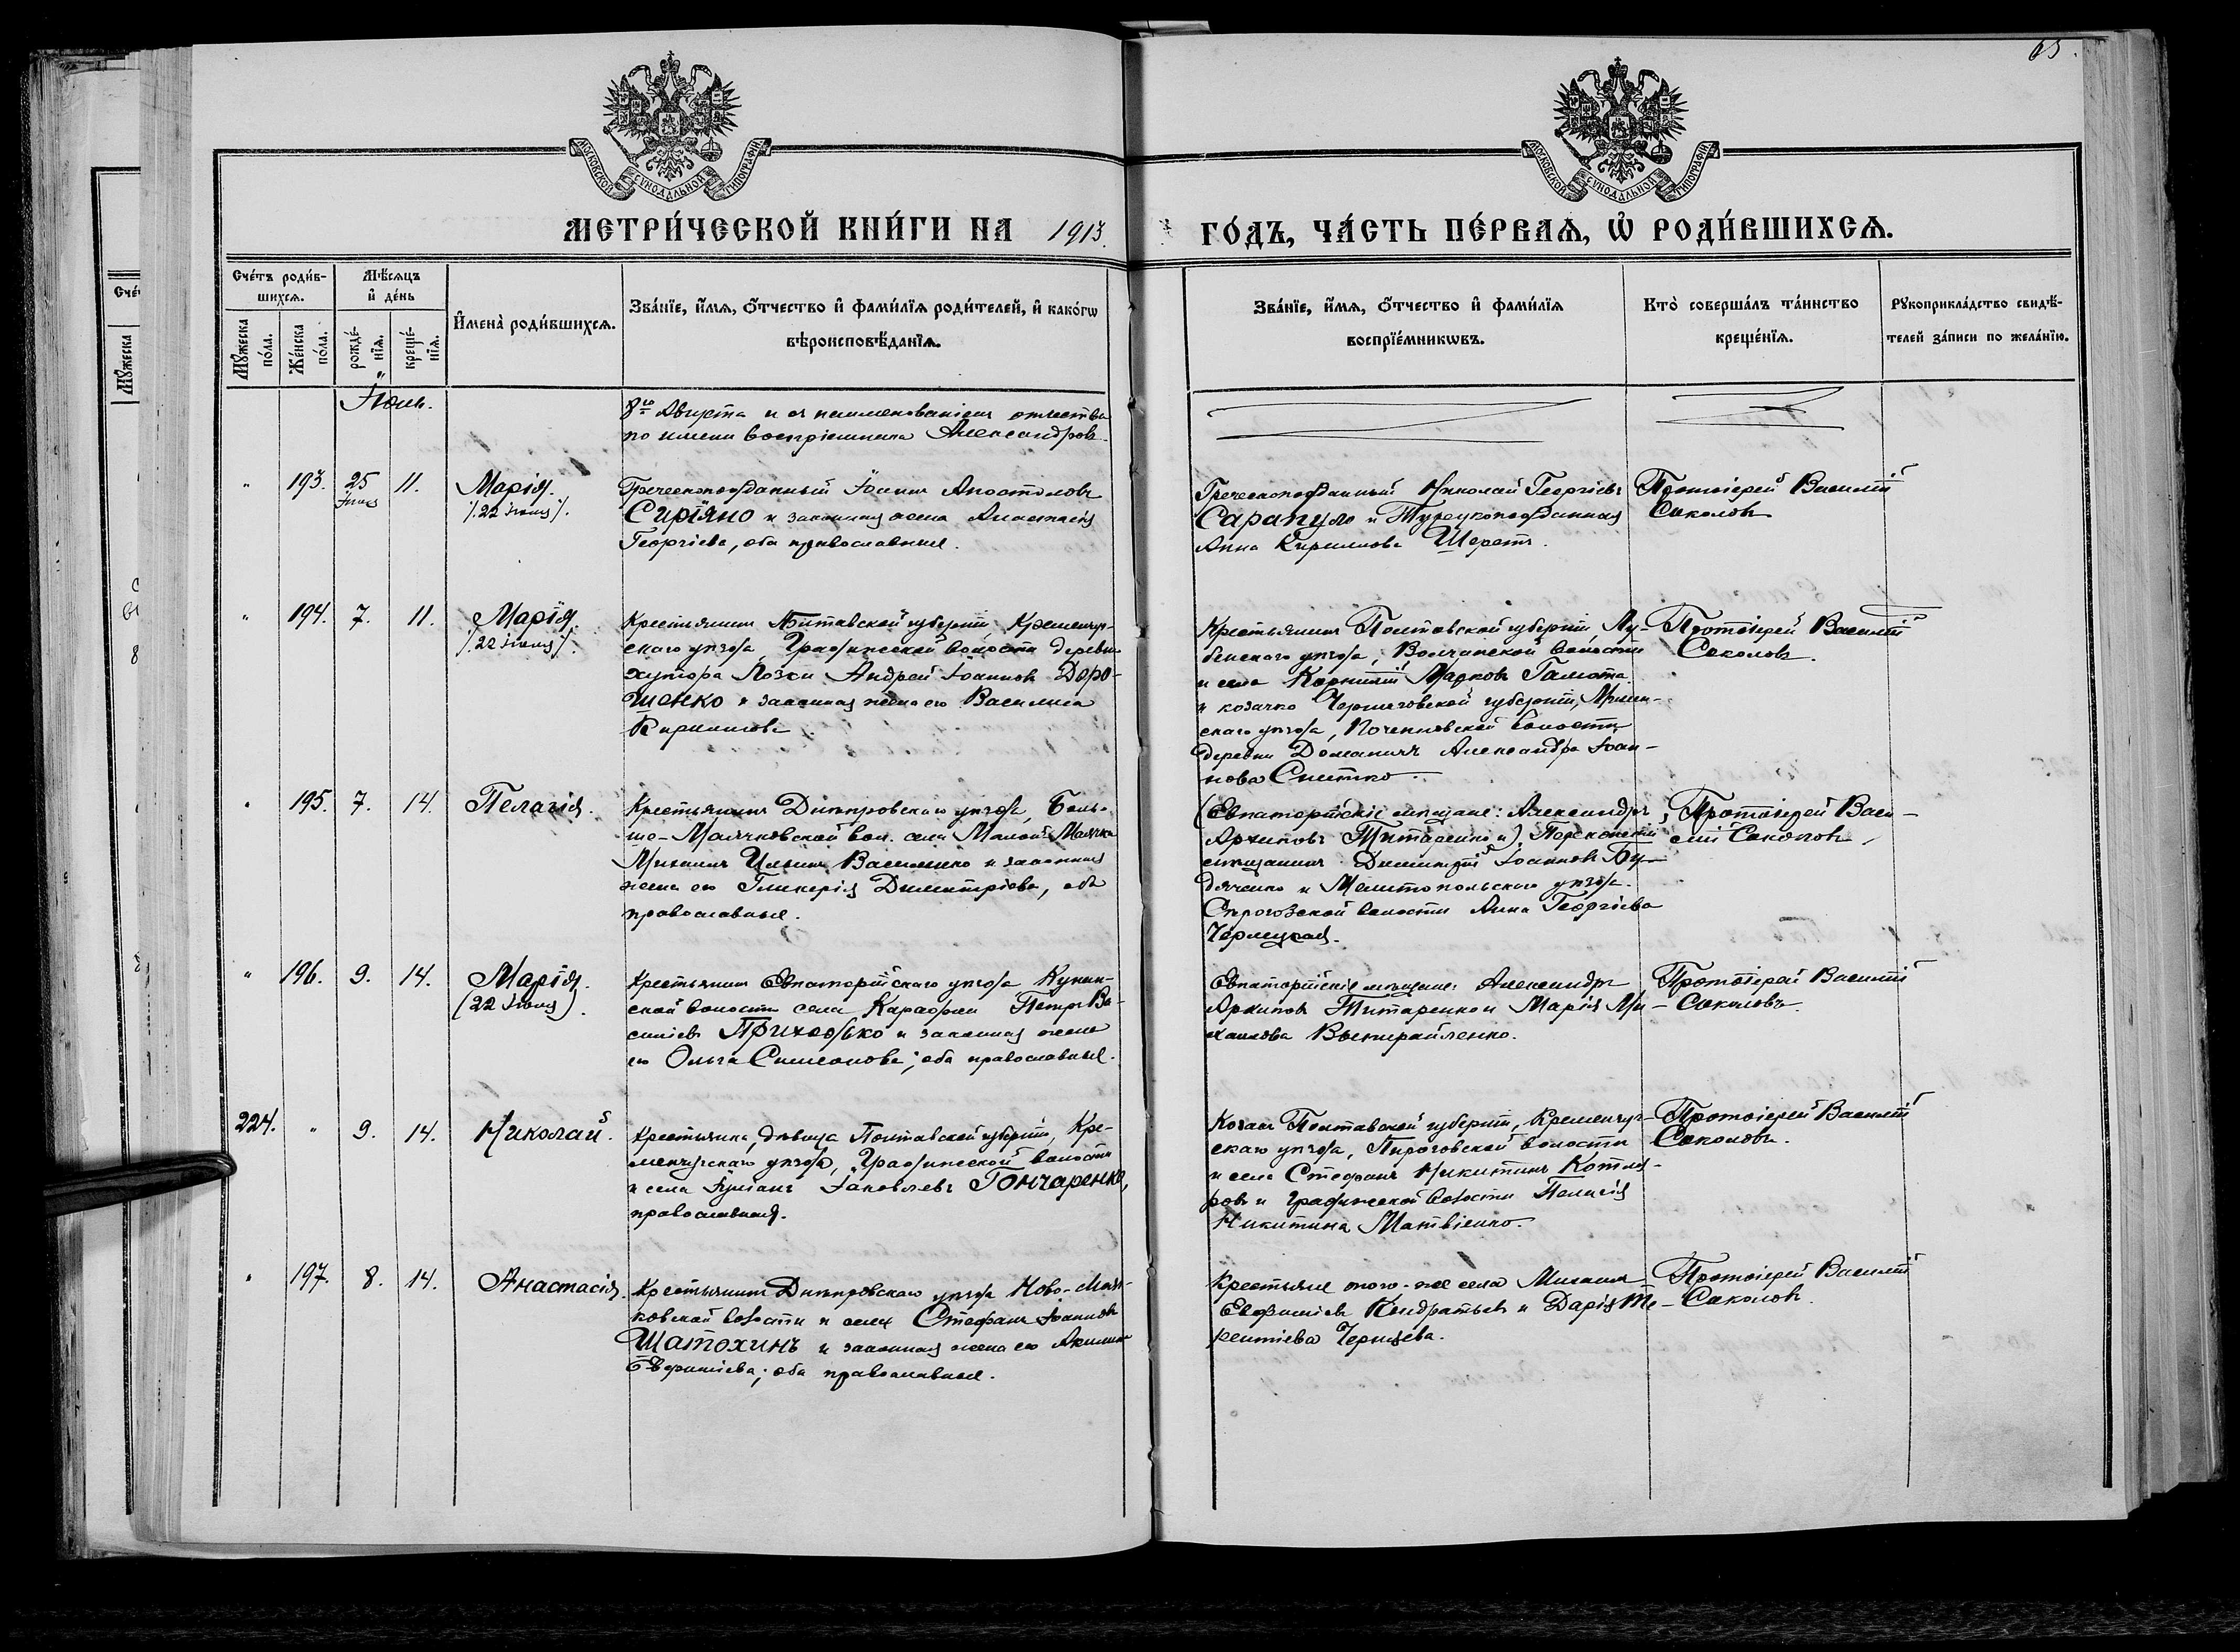 65.
МОСКОВСКОЙ СѴНОДАЛЬНОЙ ТИПОГРАФІИ
МОСКОВСКОЙ СѴНОДАЛЬНОЙ ТИПОГРАФІИ
МЕТРИ́ЧЕСКОЙ КНИ́ГИ НА 1913. ГО́ДЪ, ЧА́СТЬ ПЕ́РВАѦ, Ѡ҆ РОДИ́ВШИХСѦ.
Сче́тъ роди́в-
шихсѧ.
Мꙋ́жеска по́ла.
Же́нска по́ла.
Мѣ́сѧцъ
и҆ де́нь
рожде́-
нїѧ.
креще́-
нїѧ.
И҆мена̀ роди́вшихсѧ.
Зва́нїе, и҆́мѧ, ѻ҆́тчество и҆ фами́лїѧ роди́телей, и҆ како́гѡ
вѣроисповѣ́данїѧ.
Зва́нїе, и҆́мѧ, ѻ҆́тчество и҆ фами́лїѧ
воспрїе́мникѡвъ.
Кто̀ соверша́лъ та́инство
креще́нїѧ.
Рꙋкоприкла́дство свидѣ́-
телей за́писи по жела́нїю.
Іюль.
8го Августа и съ наименованіемъ отчества
по имени воспріемника Александровъ.
" 193. 25 Іюня 11. Марія.
/22 Іюля/.
Греческоподданный Іоаннъ Апостоловъ
Сиріяно и законная жена Анастасія
Георгіева, оба православные.
Греческоподданный Николай Георгіевъ
Сарапуло и Турецкоподданная
Анна Кириллова Шеретъ.
Протоіерей Василій
Соколовъ
" 194. 7. 11. Марія.
/22 Іюля/.
Крестьянинъ Полтавской губерніи, Кременчуг-
скаго уѣзда, Градижской волости деревни
хутора Лозки Андрей Іоанновъ Доро-
шенко и законная жена его Василиса
Кириллова.
Крестьянинъ Полтавской губерніи, Лу-
бенскаго уѣзда, Волчанской волости
и села Корнилій Марковъ Гамота
и козачка Черниговской губерніи, Мглин-
скаго уѣзда, Почепновской волости
деревни Доманичъ Александра Іоан-
нова Снитко.
Протоіерей Василій
Соколовъ.
" 195. 7. 14. Пелагія.
Крестьянинъ Днѣпровскаго уѣзда, Боль-
ше-Маячковской вол. села Малой Маячки
Михаилъ Ильинъ Василенко и законная
жена его Гликерія Димитріева, оба
православные.
(Евпаторійскіе мѣщане: Александръ
Архиповъ Титаренко и) Перекопскій
мѣщанинъ Димитрій Іоанновъ Бу-
дяченко и Мелитопольскаго уѣзда
Строгозской волости Анна Георгіева
Чермецкая.
Протоіерей Васи-
лій Соколовъ
" 196. 9. 14. Марія.
(22 Іюля).
Крестьянинъ Евпаторійскаго уѣзда Кунан-
ской волости села Караджи Петръ Ва-
силіевъ Приходько и законная жена
его Ольга Симеонова; оба православные.
Евпаторійскіе мѣщане Александръ
Архиповъ Титаренко и Марія Ми-
хаилова
Протоіерей Василій
Соколовъ.
224. " 9. 14. Николай.
Крестьянка, дѣвица Полтавской губерніи, Кре-
менчугскаго уѣзда, Градижской волости
и села Іуліанія Іаковлева Гончаренко,
православная.
Козакъ Полтавской губерніи, Кременчуг-
скаго уѣзда, Пироговской волости
и села Стефанъ Никитинъ Котля-
ровъ и Градижской волости Пелагія
Никитина Матвіенко.
Протоіерей Василій
Соколовъ.
" 197. 8. 14. Анастасія.
Крестьянинъ Днѣпровскаго уѣзда Ново-Маяч-
ковской волости и села Стефанъ Іоанновъ
Шатохинъ и законная жена его Акилина
Евфиміева; оба православные.
Крестьяне того-же села Михаилъ
Евфиміевъ Кондратьевъ и Дарія Те-
рентіева Чернцева.
Протоіерей Василій
Соколовъ.